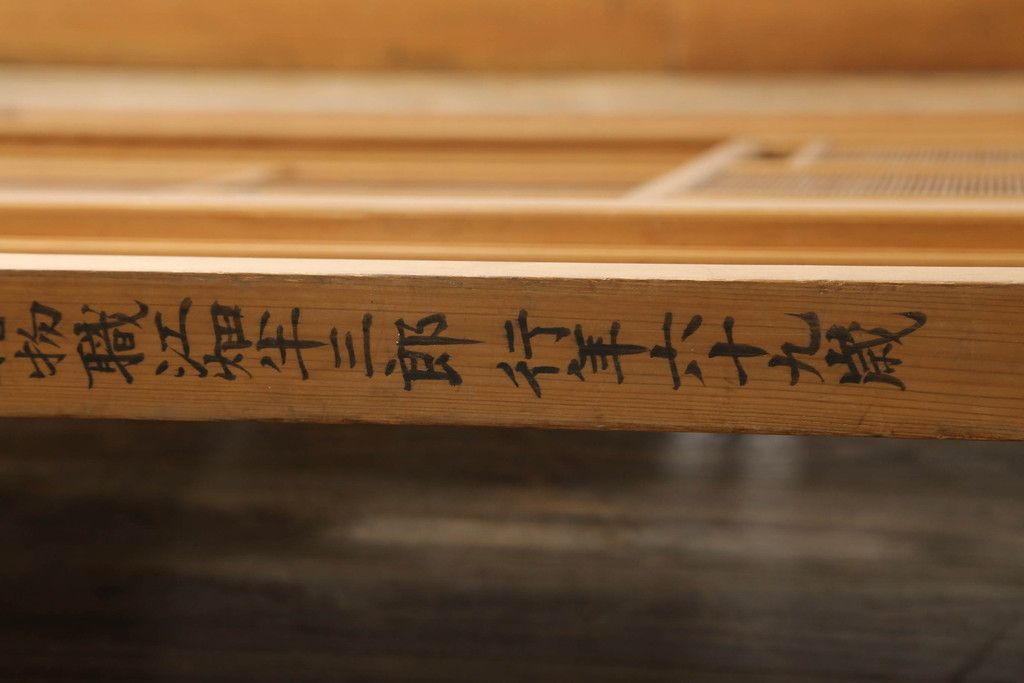 物職江畑半三郎 行年六十九歳